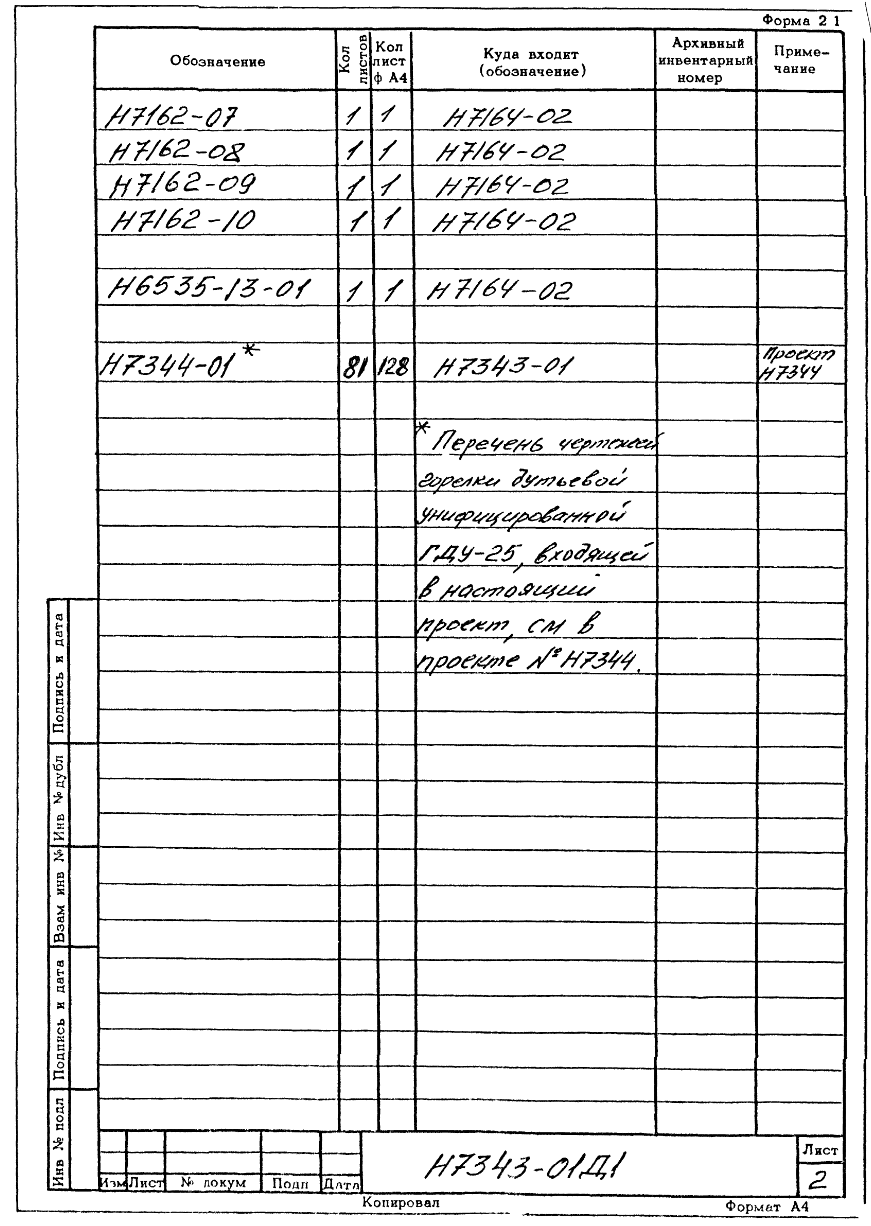 Форма 2 1
Обозначение
Кол листов
Кол лист ф А4
Куда входит (обозначение)
Архивный инвентарный номер
Приме-чание
Н7162-07 1 1 Н7164-02
Н7162-08 1 1 Н7164-02
Н7162-09 1 1 Н7164-02
Н7162-10 1 1 Н7164-02
Н6535-13-01 1 1 Н7164-02
Н7344-01* 81 128 Н7343-01 Проект Н7344
* Перечень чертежей
горелки дутьевой
унифицированной
ГДУ-25, входящей
в настоящий
проект, см в
проекте № Н7344.
Подпись и дата
Инв № дубл
Взам инв №
Подпись и дата
Инв № подл
Изм Лист № докум Подп Дата
Н7343-01Д1
Лист
2
Копировал
Формат А4